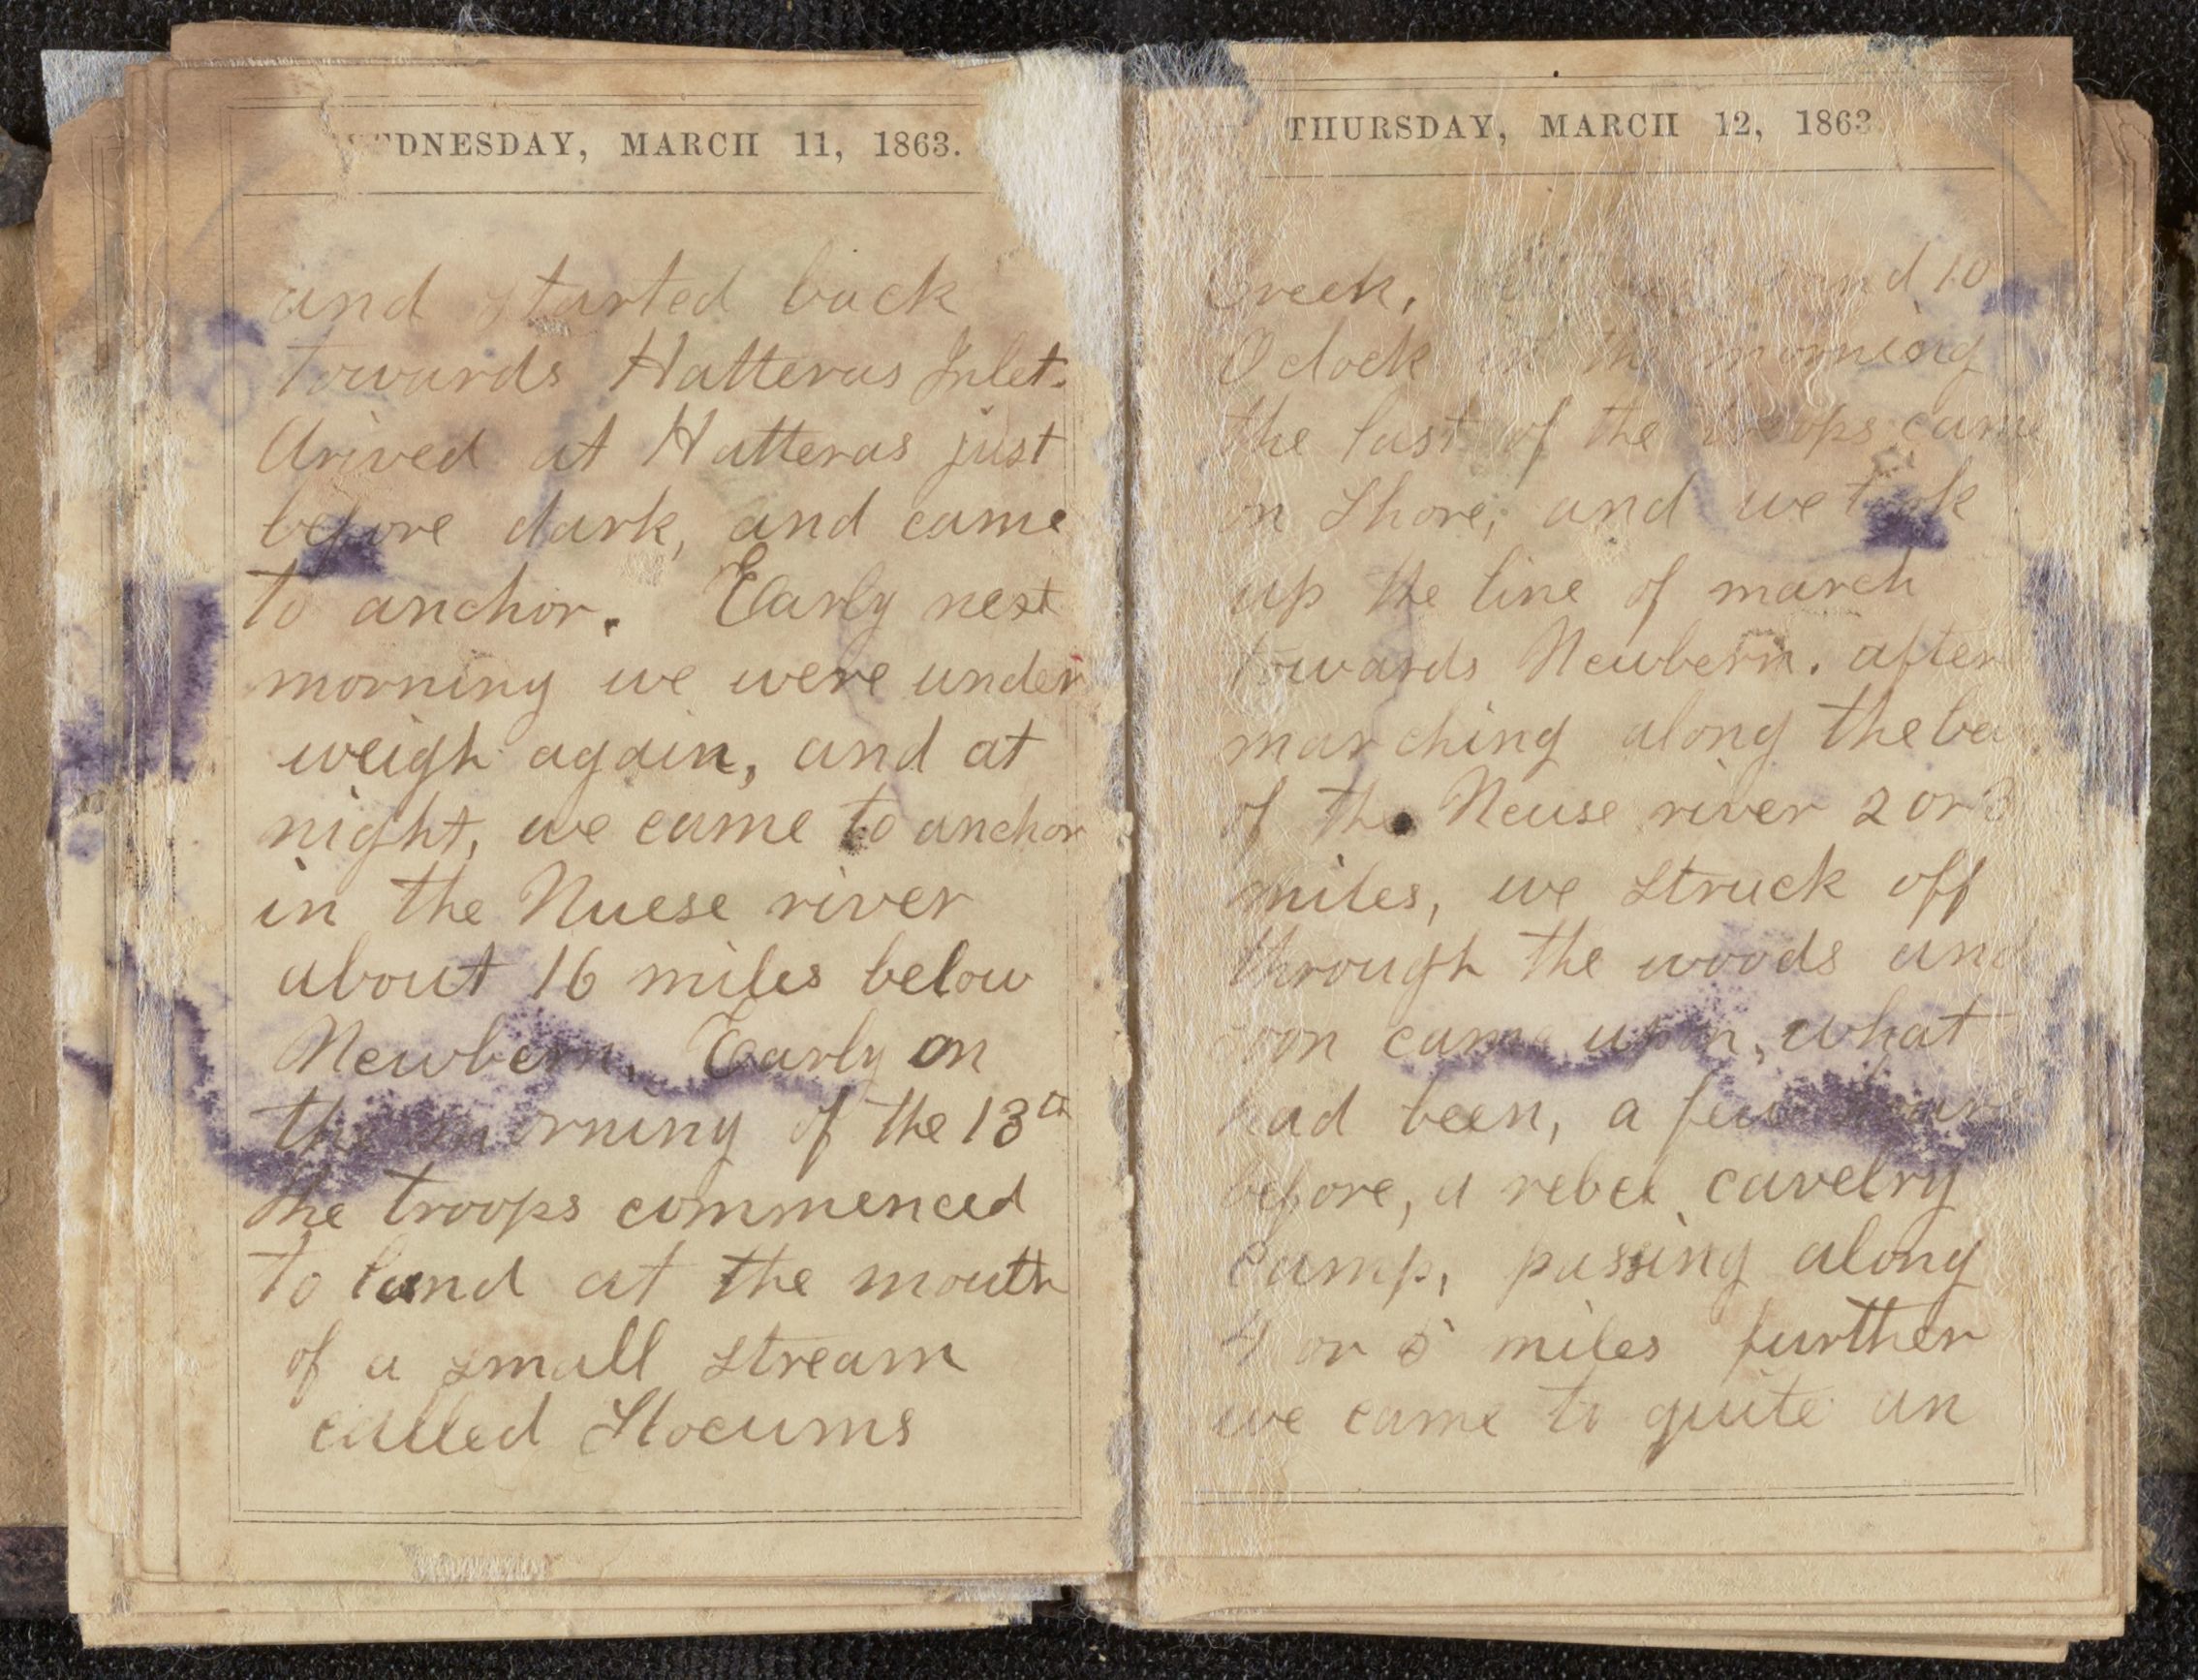 WEDNESDAY, MARCH 11, 1863.
and started back
towards Hatteras Inlet.
Arived at Hatteras just
before dark, and came
to anchor. Early next
morning we were under
weigh again, and at
night, we came to anchor
in the Nuese river
about 16 miles below
Newbern. Early on
the morning of the 13th
the troops commenced
to land at the mouth
of a small stream
called Slocums
THURSDAY, MARCH 12, 1863
Creek. 10
O clock in the morning
the last of the troops came
on shore, and we took
up the line of march
towards Newbern. after
marching along the
of the Neuse river 2 or 3
miles, we struck off
through the woods and
soon came upon, what
had been, a few
before, a rebel cavelry
camp, passing along
4 or 5 miles further
we came to quite an